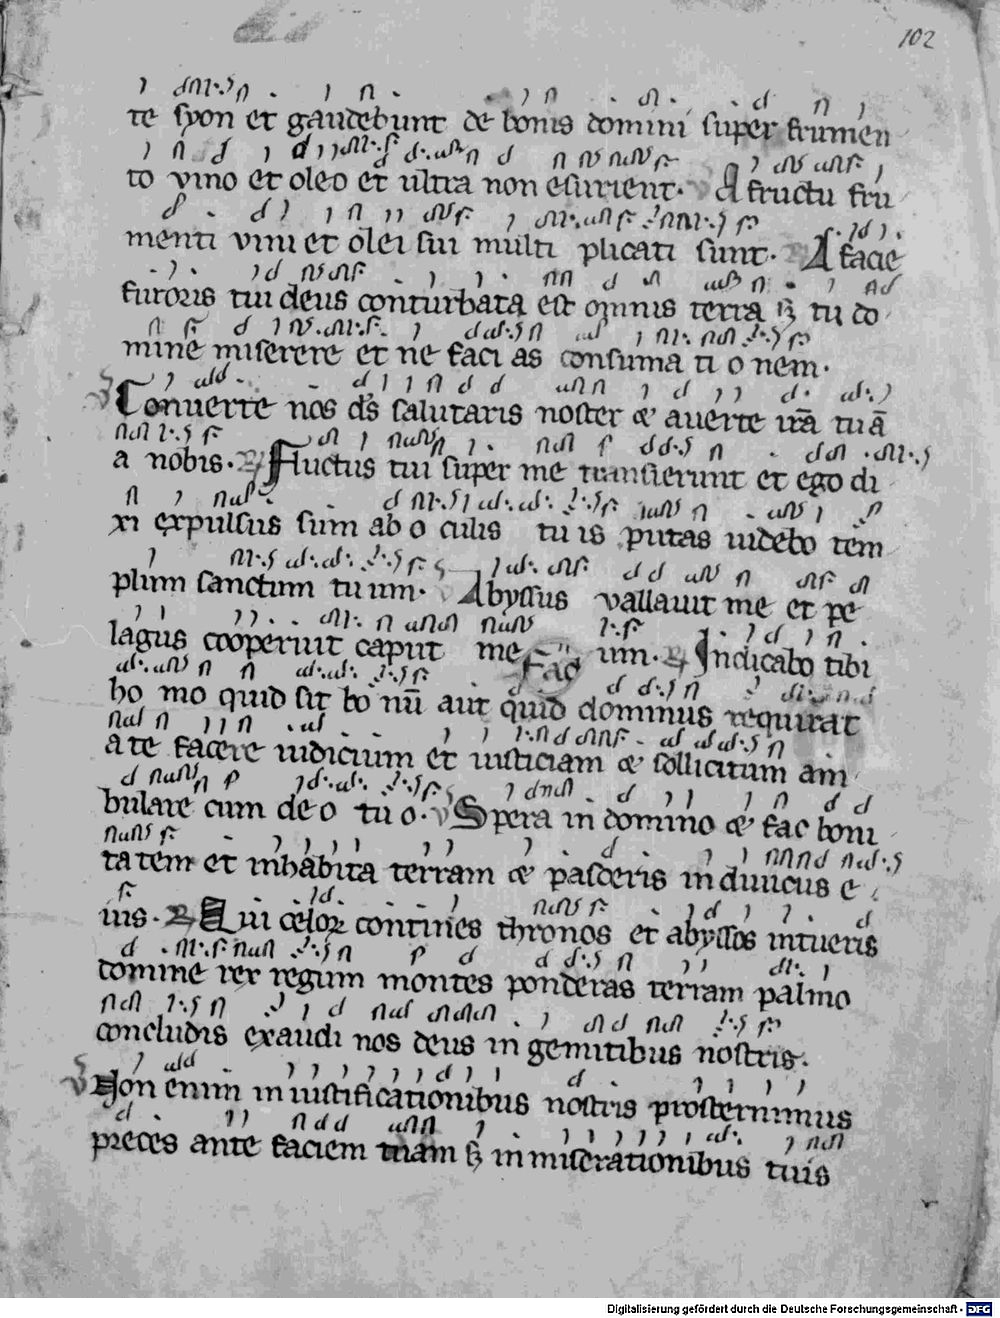 102
te syon et gaudebunt de bonis domini super frumen
to vino et oleo et ultra non esurient. V A fructu fru
menti vini et olei sui multi plicati sunt. R A facie
furoris tui deus conturbata est omnis terra s₃ tu do
mine miserere et ne faci as consuma ti o nem.
V Conuerte nos ds̄ salutaris noster & auerte irā tuā
a nobis. R Fluctus tui super me transierunt et ego di
xi expulsus sum ab o culis tu is putas uidebo tem
plum sanctum tu um. V Abyssus vallauit me et pe
lagus cooperuit caput me um. R Indicabo tibi
ho mo quid sit bo nū aut quid dominus requirat
a te facere iudicium et iusticiam & sollicitum am
bulare cum de o tu o. V Spera in domino & fac boni
tatem et inhabita terram & pasceris in diuicus e
ius. R Qui celoꝝ contines thronos et abyssos intueris
domine rex regum montes ponderas terram palmo
concludis exaudi nos deus in gemitibus nostris.
V Non enim in iustificationibus nostris prosternimus
preces ante faciem tuam s₃ in miserationibus tuis
Digitalisierung gefördert durch die Deutsche Forschungsgemeinschaft - DFG